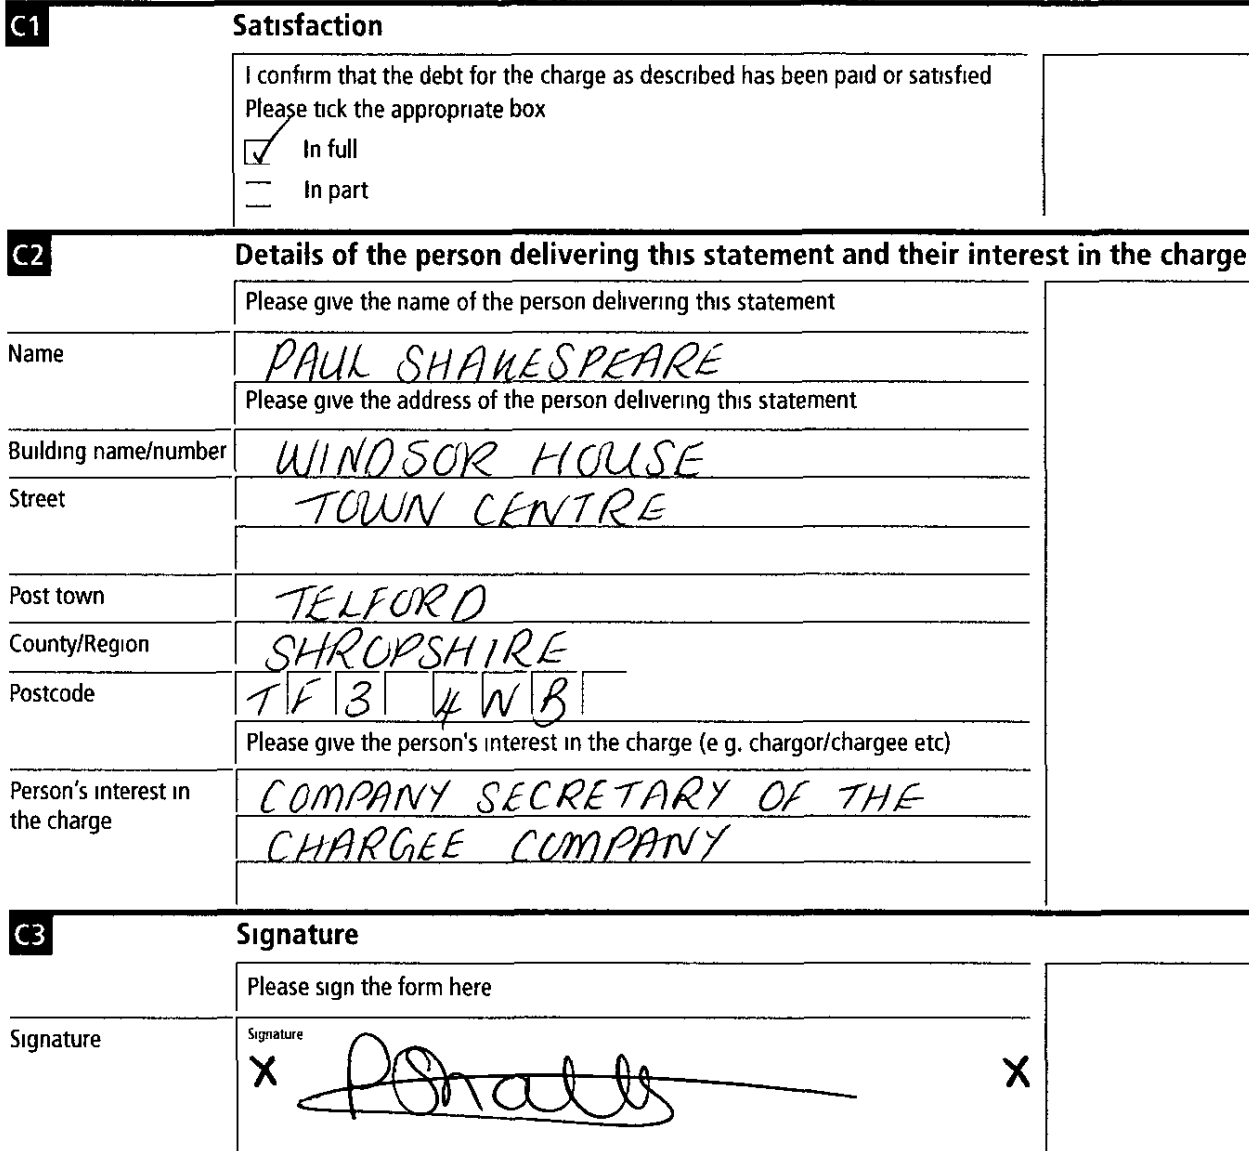 C1 Satisfaction
I confirm that the debt for the charge as described has been paid or satisfied
Please tick the appropriate box
In full
In part
C2 Details of the person delivering this statement and their interest in the charge
Please give the name of the person delivering this statement
Name PAUL SHAKESPEARE
Please give the address of the person delivering this statement
Building name/number WINDSOR HOUSE
Street TOWN CENTRE
Post town TELFORD
County/Region SHROPSHIRE
Postcode TF3 4NB
Please give the person's interest in the charge (e g. chargor/chargee etc)
Person's interest in COMPANY SECRETARY OF THE
the charge CHARGEE COMPANY
C3 Signature
Please sign the form here
Signature
Signature
X X